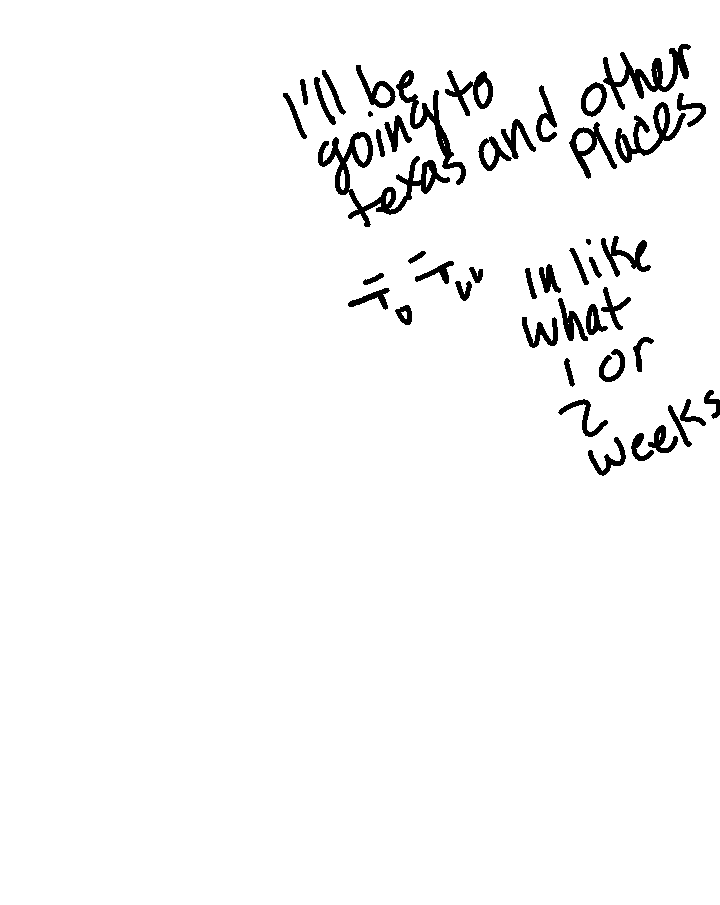 I'll be
going to
texas and other
Places
in like
what
1 or
2
weeks